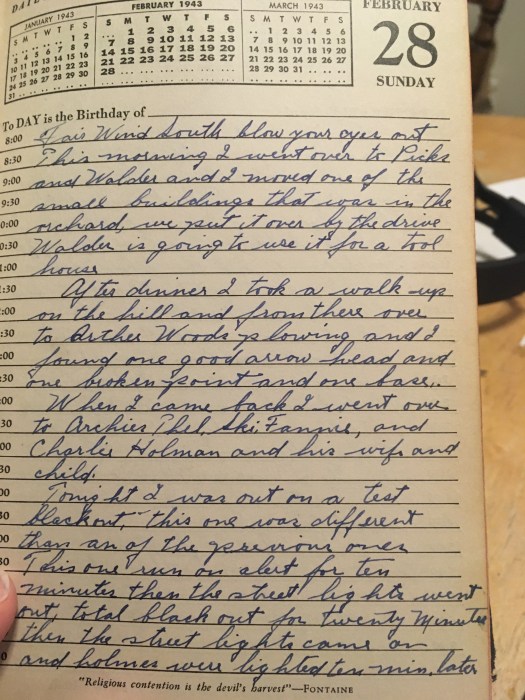 DAI
JANUARY 1943
S M T W T F S
1 2
3 4 5 6 7 8 9
10 11 12 13 14 15 16
17 18 19 20 21 22 23
24 25 26 27 28 29 30
31
FEBRUARY 1943
S M T W T F S
1 2 3 4 5 6
7 8 9 10 11 12 13
14 15 16 17 18 19 20
21 22 23 24 25 26 27
28
MARCH 1943
S M T W T F S
1 2 3 4 5 6
7 8 9 10 11 12 13
14 15 16 17 18 19 20
21 22 23 24 25 26 27
28 29 30 31
FEBRUARY
28
SUNDAY
To DAY is the Birthday of
8:00 Fair Wind South blow your eyes out
8:30 This morning I went over to Picks
9:00 and Walder and I moved one of the
9:30 small buildings that was in the
0:00 orchard, we put it over by the drive
0:30 Walder is going to use it for a tool
1:00 house
:30 After dinner I took a walk up
:00 on the hill and from there over
:30 to Arther Woods plowing and I
:00 found one good arrow head and
:30 one broken point and one base.
:00 When I came back I went over
30 to Archies Phel, Ski, Fannie, and
00 Charlie Holman and his wife and
30 child.
00 Tonight I was out on a test
30 blackout, this one was different
00 than an of the previous ones
30 This one run on alert for ten
minutes then the street lights went
out, total black out for twenty minutes
then the street lights came on
0 and holmes were lighted ten min. later
"Religious contention is the devil's harvest"—FONTAINE